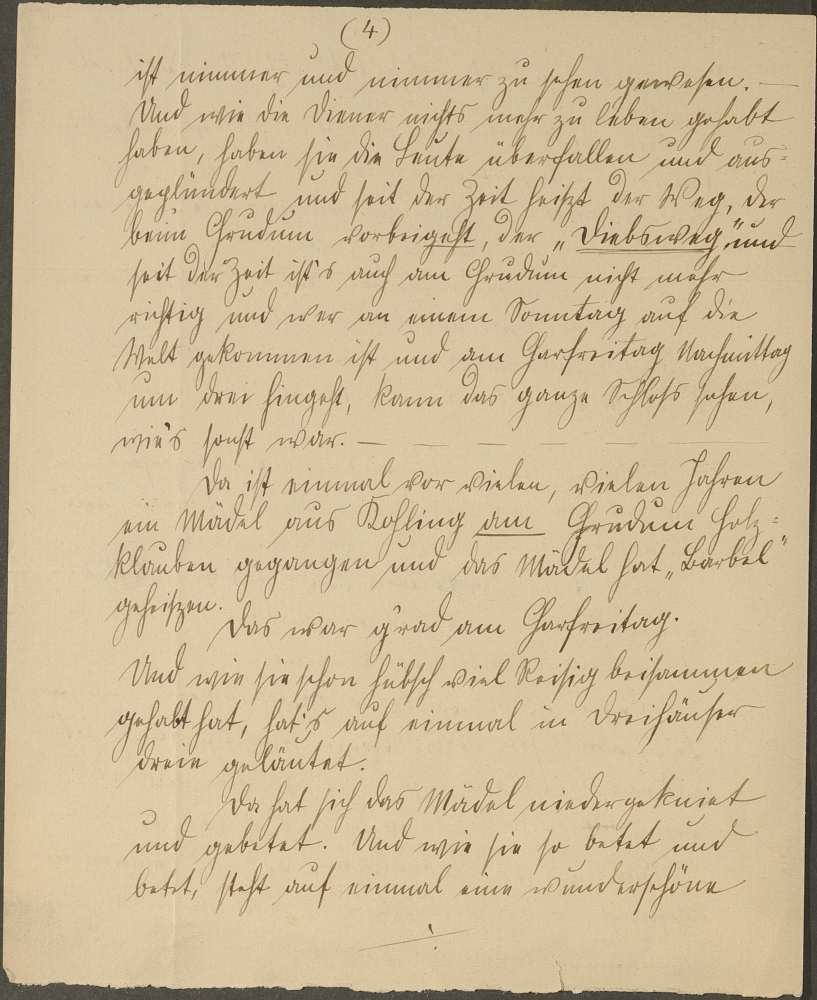 (4)
ist nimmer und nimmer zu sehen gewesen. —
Und wie die Diener nichts mehr zu leben gehabt
haben, haben sie die Leute überfallen und aus=
geplündert und seit der Zeit heiszt der Weg, der
beim Grudum vorbeigeht, der „Diebsweg", und
seit der Zeit ist's auch am Grudum nicht mehr
richtig und wer an einem Sonntag auf die
Welt gekommen ist und am Charfreitag Nachmittag
um drei hingeht, kann das ganze Schloß sehen,
wie's sonst war. — — — — — —
Da ist einmal vor vielen, vielen Jahren
ein Mädel aus Kohling am Grudum Holz=
klauben gegangen und das Mädel hat „Barbel"
geheiszen.
Das war g'rad am Charfreitag.
Und wie sie schon hübsch viel Reisig beisammen
gehabt hat, hat's auf einmal in Dreihäuser
dreie geläutet.
Da hat sich das Mädel niedergekniet
und gebetet. Und wie sie so betet und
betet, steht auf einmal eine wunderschöne